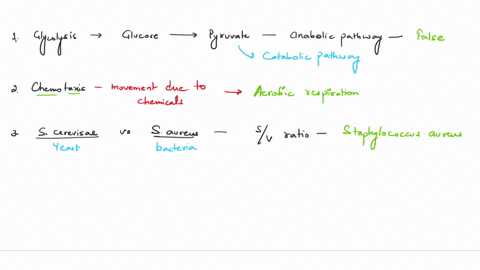 1. Glycolysis → Glucose → Pyruvate — Anabolic pathway — False
Catabolic pathway
2. Chemotaxis — movement due to chemicals → Aerobic respiration
3. S. cerevisae vs S. aureus — S/V ratio — Staphylococcus aureus
Yeast bacteria